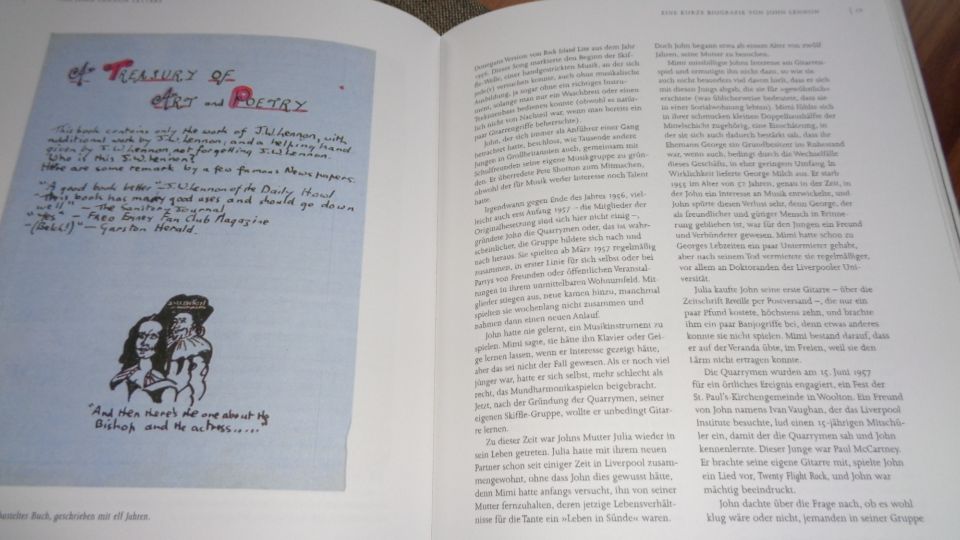 JOHN LENNON LETTERS
A TREASURY OF
ART and POETRY
This book contains only the work of J.W. Lennon, with
additional work by J.W. Lennon, and a helping hand
given by J.W. Lennon, not forgetting J.W. Lennon.
Who is this J.W. Lennon?
Here are some remark by a few famous Newspapers.
"A good book better" J.W. Lennon of the Daily Howl
-"This book has many good uses and should go down
well" - The Sanitary Journal
-"Yes" - Fred Emney Fan Club Magazine
-(Belch!)" - Garston Herald.
"And then there's the one about the
Bishop and the actress.....
basteltes Buch, geschrieben mit elf Jahren.
EINE KURZE BIOGRAFIE VON JOHN LENNON
Donegans Version von Rock Island Line aus dem Jahr
1956. Dieses Song markierte den Beginn der Skif-
fle-Welle, einer handgestrickten Musik, an der sich
jede(r) versuchen konnte, auch ohne musikalische
Ausbildung, ja sogar ohne ein richtiges Instru-
ment, solange man nur ein Waschbrett oder einen
Teekistenbass bedienen konnte (obwohl es natür-
lich nicht von Nachteil war, wenn man bereits ein
paar Gitarrengriffe beherrschte).
John, der sich immer als Anführer einer Gang
betrachtet hatte, beschloss, wie Tausende andere
Jungen in Großbritannien auch, gemeinsam mit
Schulfreunden seine eigene Musikgruppe zu grün-
den. Er überredete Pete Shotton zum Mitmachen,
obwohl der für Musik weder Interesse noch Talent
hatte.
Irgendwann gegen Ende des Jahres 1956, viel-
leicht auch erst Anfang 1957 – die Mitglieder der
Originalbesetzung sind sich hier nicht einig –,
gründete John die Quarrymen oder, das ist wahr-
scheinlicher, die Gruppe bildete sich nach und
nach heraus. Sie spielten ab März 1957 regelmäßig
zusammen, in erster Linie für sich selbst oder bei
Partys von Freunden oder öffentlichen Veranstal-
tungen in ihrem unmittelbaren Wohnumfeld. Mit-
glieder stiegen aus, neue kamen hinzu, manchmal
spielten sie wochenlang nicht zusammen und
nahmen dann einen neuen Anlauf.
John hatte nie gelernt, ein Musikinstrument zu
spielen. Mimi sagte, sie hätte ihn Klavier oder Gei-
ge lernen lassen, wenn er Interesse gezeigt hätte,
aber das sei nicht der Fall gewesen. Als er noch viel
jünger war, hatte er sich selbst, mehr schlecht als
recht, das Mundharmonikaspielen beigebracht.
Jetzt, nach der Gründung der Quarrymen, seiner
eigenen Skiffle-Gruppe, wollte er unbedingt Gitar-
re lernen.
Zu dieser Zeit war Johns Mutter Julia wieder in
sein Leben getreten. Julia hatte mit ihrem neuen
Partner schon seit einiger Zeit in Liverpool zusam-
mengewohnt, ohne dass John dies gewusst hätte,
denn Mimi hatte anfangs versucht, ihn von seiner
Mutter fernzuhalten, deren jetzige Lebensverhält-
nisse für die Tante ein »Leben in Sünde« waren.
Doch John begann etwa ab einem Alter von zwölf
Jahren, seine Mutter zu besuchen.
Mimi missbilligte Johns Interesse am Gitarren-
spiel und ermutigte ihn nicht dazu, so wie sie
auch nicht besonders viel davon hielt, dass er sich
mit diesen Jungs abgab, die sie für »gewöhnlich«
erachtete (was üblicherweise bedeutete, dass sie
in einer Sozialwohnung lebten). Mimi fühlte sich
in ihrer schmucken kleinen Doppelhaushälfte der
Mittelschicht zugehörig, eine Einschätzung, in
der sie sich auch dadurch bestärkt sah, dass ihr
Ehemann George ein Grundbesitzer im Ruhestand
war, wenn auch, bedingt durch die Wechselfälle
dieses Geschäfts, in eher geringem Umfang. In
Wirklichkeit lieferte George Milch aus. Er starb
1955 im Alter von 52 Jahren, genau in der Zeit, in
der John ein Interesse an Musik entwickelte, und
John spürte diesen Verlust sehr, denn George, der
als freundlicher und gütiger Mensch in Erinne-
rung geblieben ist, war für den Jungen ein Freund
und Verbündeter gewesen. Mimi hatte schon zu
Georges Lebzeiten ein paar Untermieter gehabt,
aber nach seinem Tod vermietete sie regelmäßiger,
vor allem an Doktoranden der Liverpooler Uni-
versität.
Julia kaufte John seine erste Gitarre – über die
Zeitschrift Reveille per Postversand –, die nur ein
paar Pfund kostete, höchstens zehn, und brachte
ihm ein paar Banjogriffe bei, denn etwas anderes
konnte sie nicht spielen. Mimi bestand darauf, dass
er auf der Veranda übte, im Freien, weil sie den
Lärm nicht ertragen konnte.
Die Quarrymen wurden am 15. Juni 1957
für ein örtliches Ereignis engagiert, ein Fest der
St. Paul's-Kirchengemeinde in Woolton. Ein Freund
von John namens Ivan Vaughan, der das Liverpool
Institute besuchte, lud einen 15-jährigen Mitschü-
ler ein, damit der die Quarrymen sah und John
kennenlernte. Dieser Junge war Paul McCartney.
Er brachte seine eigene Gitarre mit, spielte John
ein Lied vor, Twenty Flight Rock, und John war
mächtig beeindruckt.
John dachte über die Frage nach, ob es wohl
klug wäre oder nicht, jemanden in seiner Gruppe